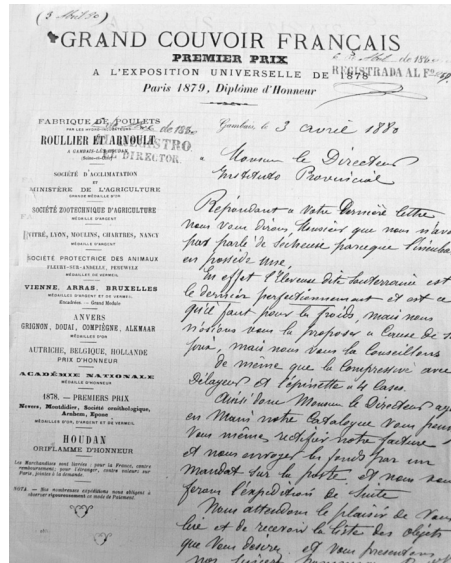 (3 Abril 80)
GRAND COUVOIR FRANÇAIS
PREMIER PRIX
A L'EXPOSITION UNIVERSELLE DE 1878
Paris 1879, Diplôme d'Honneur
de 1880
REGISTRADA AL Fº
FABRIQUE DE POULETS
PAR LES HYDRO-INCUBATEURS
ROULLIER ET ARNOULT
A GAMBAIS-LES-HOUDAN
(Seine-et-Oise)
de 1880
REGISTRO
DIRECTOR.
SOCIÉTÉ D'ACCLIMATATION
ET
MINISTÈRE DE L'AGRICULTURE
GRANDE MÉDAILLE D'OR
SOCIÉTÉ ZOOTECHNIQUE D'AGRICULTURE
MÉDAILLE D'ARGENT
VITRÉ, LYON, MOULINS, CHARTRES, NANCY
MÉDAILLE D'ARGENT
SOCIÉTÉ PROTECTRICE DES ANIMAUX
MÉDAILLES DE VERMEIL
VIENNE, ARRAS, BRUXELLES
MÉDAILLES D'ARGENT ET DE VERMEIL
ANVERS
GRIGNON, DOUAI, COMPIÈGNE, ALKMAAR
MÉDAILLES D'OR
AUTRICHE, BELGIQUE, HOLLANDE
PRIX D'HONNEUR
ACADÉMIE NATIONALE
MÉDAILLE D'HONNEUR
1878. — PREMIERS PRIX
Nevers, Montdidier, Société ornithologique,
Arnhem, Epone
MÉDAILLES D'OR, D'ARGENT ET DE VERMEIL
HOUDAN
ORIFLAMME D'HONNEUR
Les Marchandises sont livrées : pour la France, contre
remboursement, pour l'étranger, contre valeurs sur
Paris, jointes à la demande.
NOTA. — Nos nombreuses expéditions nous obligent à
observer rigoureusement ce mode de Paiement.
Gambais, le 3 avril 1880
Monsieur le Directeur
Instituto Provincial
Répondant a votre dernière lettre
nous vous dirons, Monsieur que nous n'avons
pas parlé de Sécheuse parceque
en possède une.
En effet l'Eleveuse dite Souterraine est
le dernier perfectionnement et est ce
qu'il faut pour les froids, mais nous
n'osions vous la proposer a Cause de
prix, mais nous vous la Conseillons
de même que la Compressive avec
Délayeur et l'épinette à 4 Cases.
Ainsi donc Monsieur le Directeur
en Mains notre Catalogue Vous
vous même rectifier notre facture
et nous envoyer les fonds par un
mandat sur la poste, et nous
ferons l'expédition de Suite
Nous attendons le plaisir de vous
lire et de recevoir la liste des objets
que vous désirez, et vous présentons